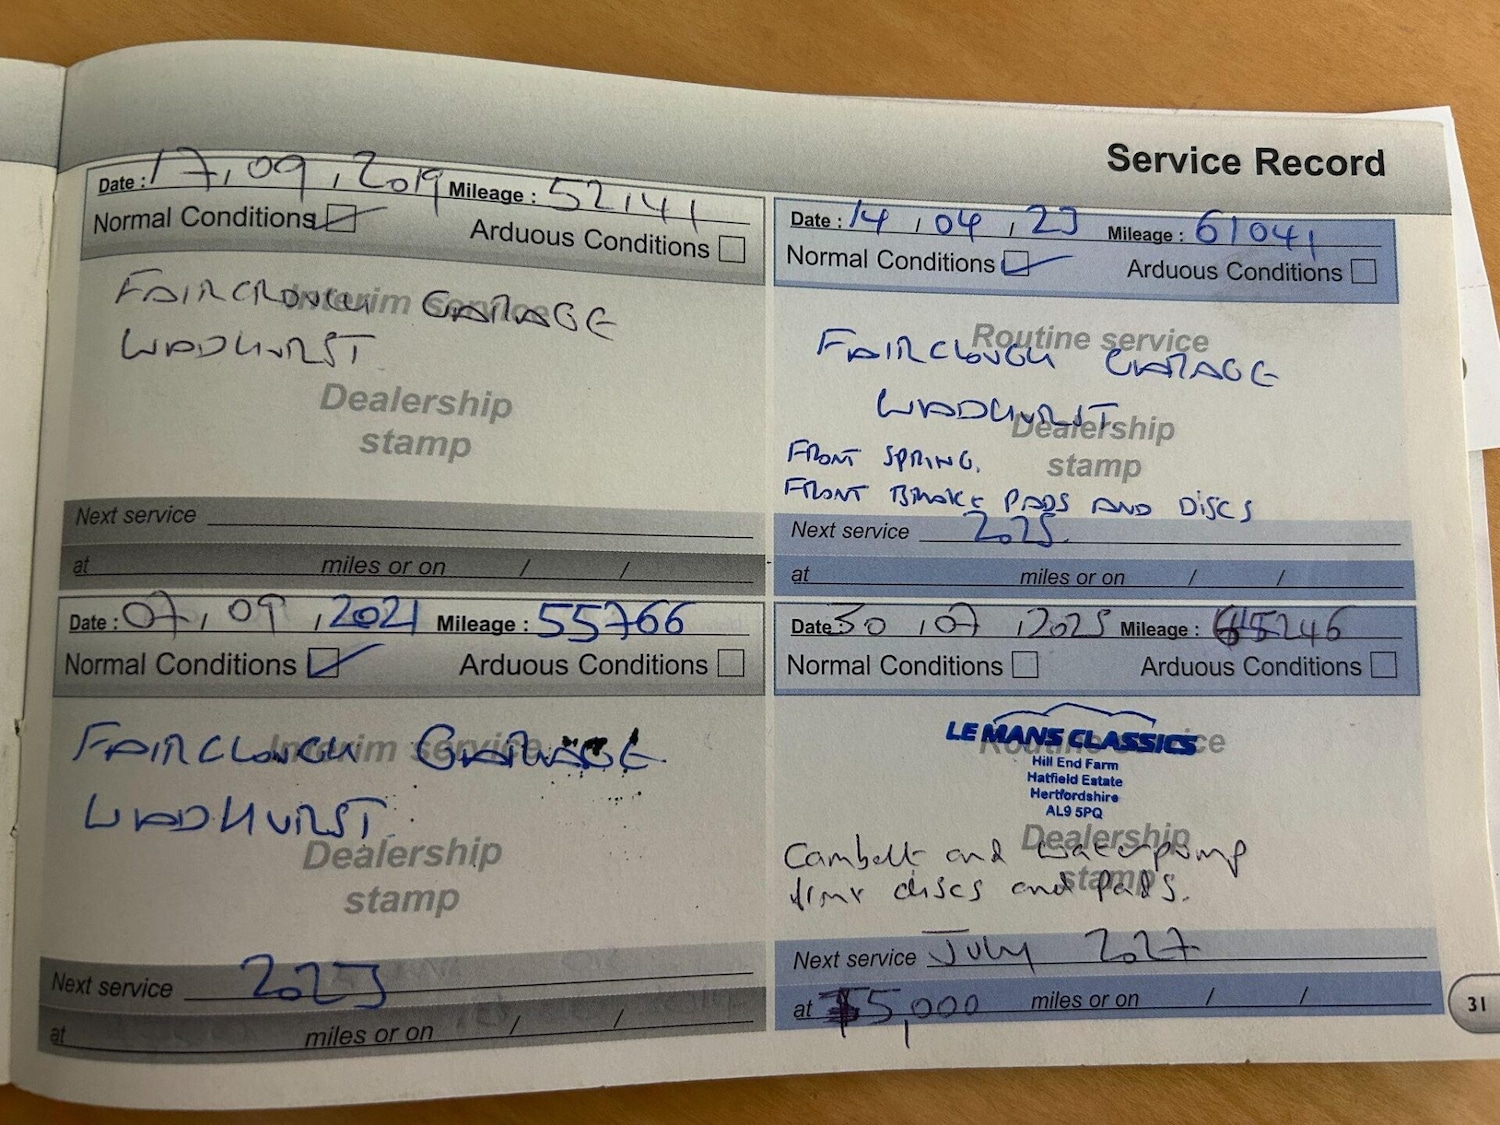 Service Record
Date : 17, 09, 2019 Mileage : 52,141
Normal Conditions Arduous Conditions
Interim service
FAIRCROUGH GARAGE
WADHURST
Dealership
stamp
Next service
at miles or on / /
Date : 07, 09, 2021 Mileage : 55766
Normal Conditions Arduous Conditions
Interim service
FAIRCLOUGH GARAGE
WADHURST.
Dealership
stamp
Next service 2023
at miles or on / /
Date : 14, 04, 23 Mileage : 61041
Normal Conditions Arduous Conditions
Routine service
FAIRCLOUGH GARAGE
WADHURST.
Dealership
stamp
FRONT SPRING.
FRONT BRAKE PADS AND DISCS
Next service 2025.
at miles or on / /
Date : 30, 07, 2025 Mileage : 65246
Normal Conditions Arduous Conditions
Routine service
LE MANS CLASSICS
Hill End Farm
Hatfield Estate
Hertfordshire
AL9 5PQ
Dealership
stamp
Cambelt and waterpump
discs and pads.
Next service July 2027
at 5,000 miles or on / /
31